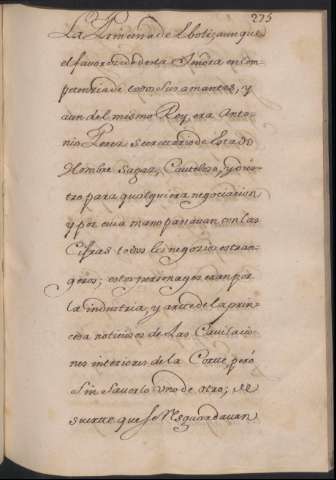 275
La Princesa de Eboli; aunque
el favorecido desta Señora en com-
petencia de todos sus amantes, y
aun del mismo Rey, era Anto-
nio Perez Secretario de Estado
Hombre sagaz, Cauteloso, y dies-
tro para qualquiera negociacion
y por cuia mano passauan con las
Cifras todos los negozios estran-
geros; estos personages eran por
la industria, y arte de la prin-
cesa noticiosos de las Cauilacio-
nes interiores de la Corte, pero
sin sauerlo uno de otro; de
suerte que se resguardauan